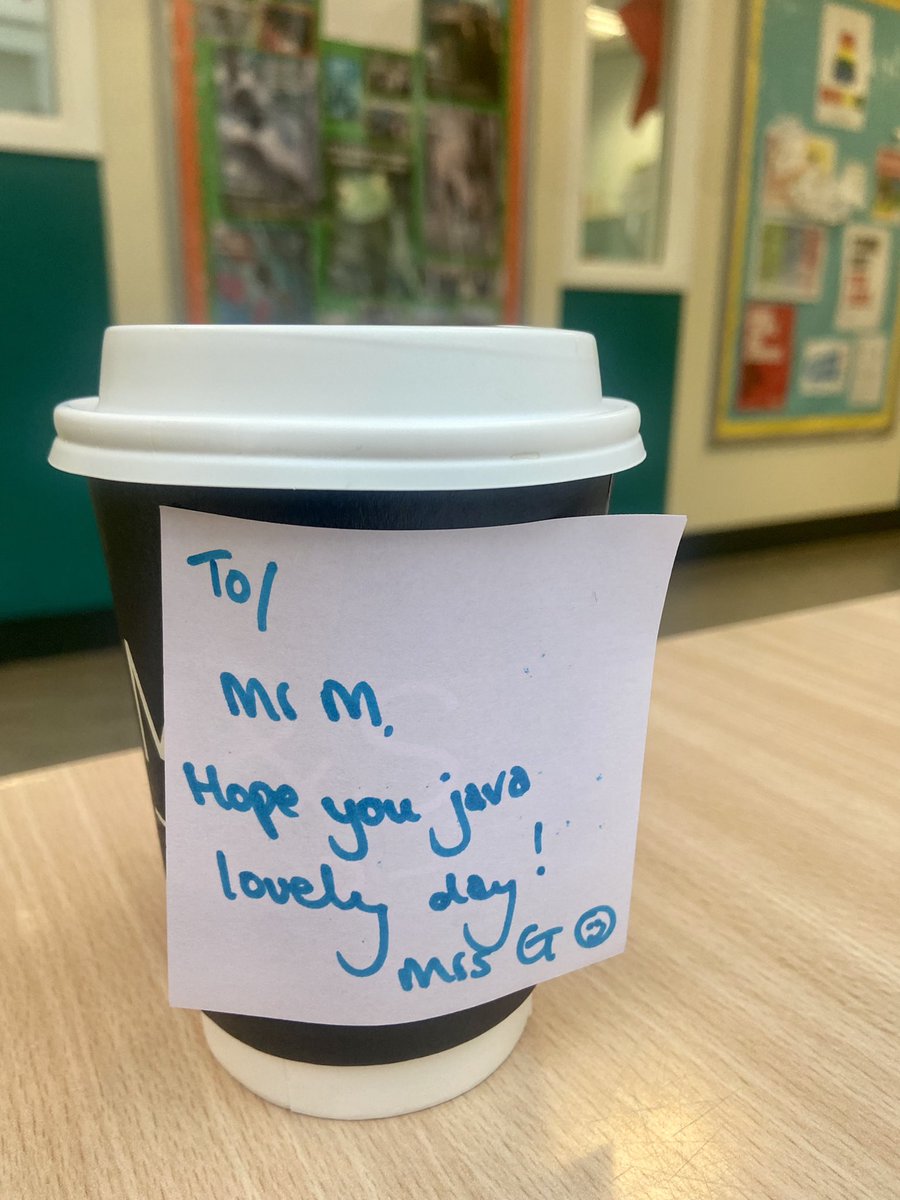 To/
Mr M.
Hope you java
lovely day!
Mrs G